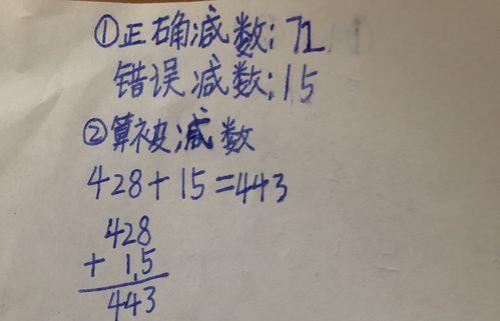 ①正确减数:72
错误减数:15
②算被减数
428+15=443
428
+ 15
443